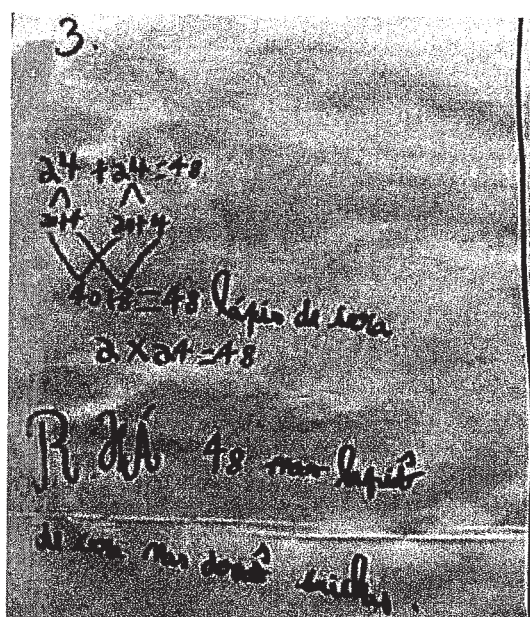 3.
24 + 24 = 48
20+4 20+4
40+8=48 lápis de cera
2 X 24 = 48
R. Há 48 nos lapis
de cera nas